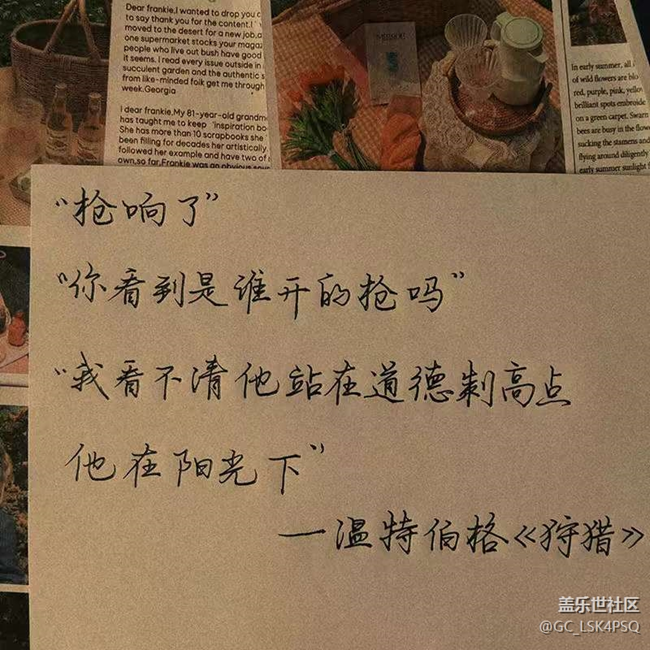 Dear frankie,I wanted to drop you
to say thank you for the content.I
moved to the desert for a new job,a
one supermarket stocks your maga
people who live out bush have good
it seems. I read every issue outside in
succulent garden and the authentic s
from like-minded folk get me through
week.Georgia
dear frankie,My 81-year-old grandm
has taught me to keep 'inspiration bo
She has more than 10 scrapbooks she
been filling for decades her artistically
followed her example and have two of
own,so far,Frankie was an obvious
In early summer, all
of wild flowers are blo
red, purple, pink, yellow
brilliant spots embroide
on a green carpet. Swarm
bees are busy in the flow
sucking the stamens and
flying around diligently
early summer sunlight
“枪响了”
“你看到是谁开的枪吗”
“我看不清他站在道德制高点
他在阳光下”
—温特伯格《狩猎》
盖乐世社区
@GC_LSK4PSQ